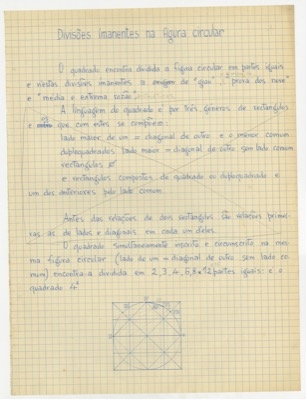 Divisões imanentes na figura circular
O quadrado encontra dividida a figura circular em partes iguais
e nestas divisões imanentes a origem de "que", "prova dos nove"
e "media e extrema razão".
A linguagem do quadrado é por três géneros de rectângulos
e que com estes se compõem:
lado maior de um = diagonal de outro e o menor comum
duploquadrados lado maior = diagonal de outro sem lado comum
rectângulos Ø
e rectângulos compostos, de quadrado ou duploquadrado e
um dos anteriores pelo lado comum.
Antes das relações de dois rectângulos são relações primei-
ras as de lados e diagonais em cada um deles.
O quadrado simultaneamente inscrito e circunscrito na mes-
ma figura circular (lado de um = diagonal de outro sem lado co-
mum) encontra a dividida em 2, 3, 4, 6, 8 e 12 partes iguais: e o
quadrado 4²